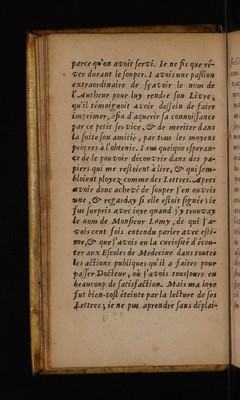 parce qu'on avoit servi. Ie ne fis que ré-
ver durant le souper. I avois une passion
extraordinaire de sçavoir le nom de
l'Autheur pour luy rendre son Livre,
qu'il témoignoit avoir dessein de faire
imprimer, afin d'aquerir sa connoissance
par ce petit service, & de meriter dans
la suite son amitié, par tous les moyens
propres à l'obtenir. I eus quelque esperan-
ce de le pouvoir découvrir dans des pa-
piers qui me restoient à lire, & qui sem-
bloient ployez comme des Lettres. Apres
avoir donc achevé de souper j'en ouvris
une, & regarday si elle estoit signée: ie
fus surpris avec ioye quand j'y trouvay
le nom de Monsieur Lamy, de qui j'a-
vois cent fois entendu parler avec esti-
me, & que j'avois eu la curiosité d'écou-
ter aux Escoles de Medecine dans toutes
les actions publiques qu'il a faites pour
passer Docteur, où j'avois tousjours eu
beaucoup de satisfaction. Mais ma ioye
fut bien-tost éteinte par la lecture de ses
Lettres; ie ne pus aprendre sans déplai-